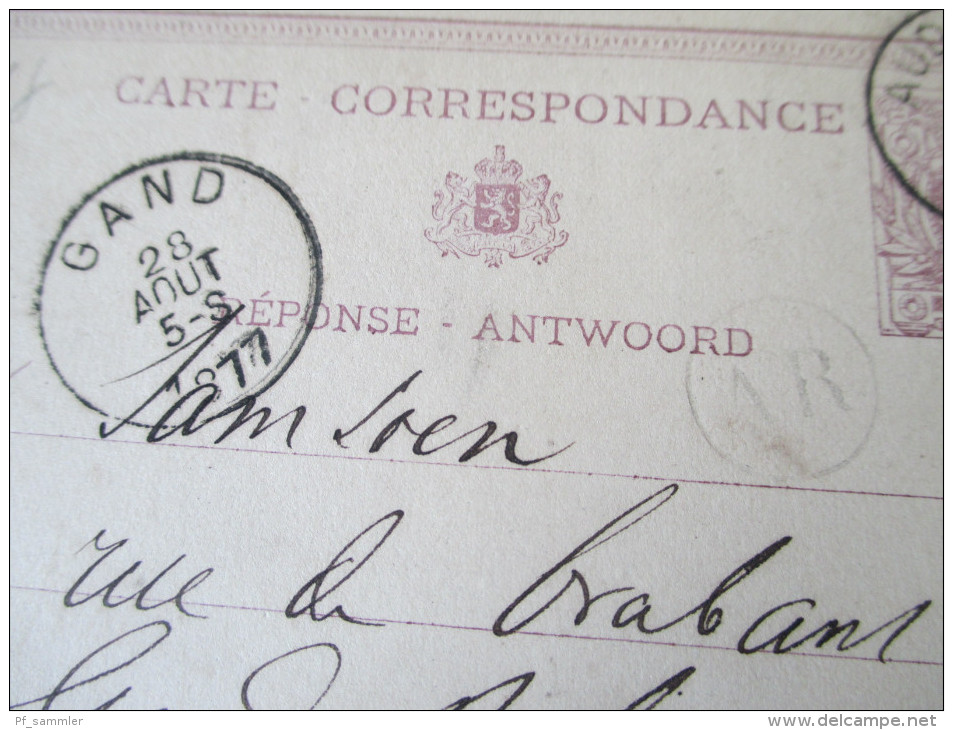 CARTE - CORRESPONDANCE
AUG
GAND
28
AOUT
5-S
1877
RÉPONSE - ANTWOORD
AR
Samsoen
rue de brabant
Pf_sammler
www.delcampe.net